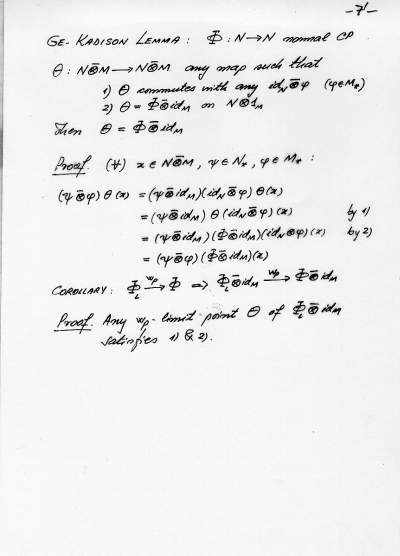 -7'-
GE-KADISON LEMMA: Φ : N→N normal CP
θ : N⊗̄M → N⊗̄M any map such that
1) θ commutes with any id_N ⊗̄ φ (φ∈M_*)
2) θ = Φ⊗̄id_M on N⊗1_M
Then θ = Φ⊗̄id_M
Proof. (∀) x ∈ N⊗̄M, ψ∈N_*, φ∈M_* :
(ψ⊗̄φ) θ(x) = (ψ⊗̄id_M)(id_N⊗̄φ) θ(x)
= (ψ⊗̄id_M) θ (id_N⊗̄φ)(x) by 1)
= (ψ⊗̄id_M)(Φ⊗̄id_M)(id_N⊗φ)(x) by 2)
= (ψ⊗̄φ)(Φ⊗̄id_M)(x)
COROLLARY: Φ_i —wp→ Φ ⇒ Φ_i⊗̄id_M —wp→ Φ⊗̄id_M
Proof. Any wp-limit point θ of Φ_i⊗̄id_M
satisfies 1) & 2).